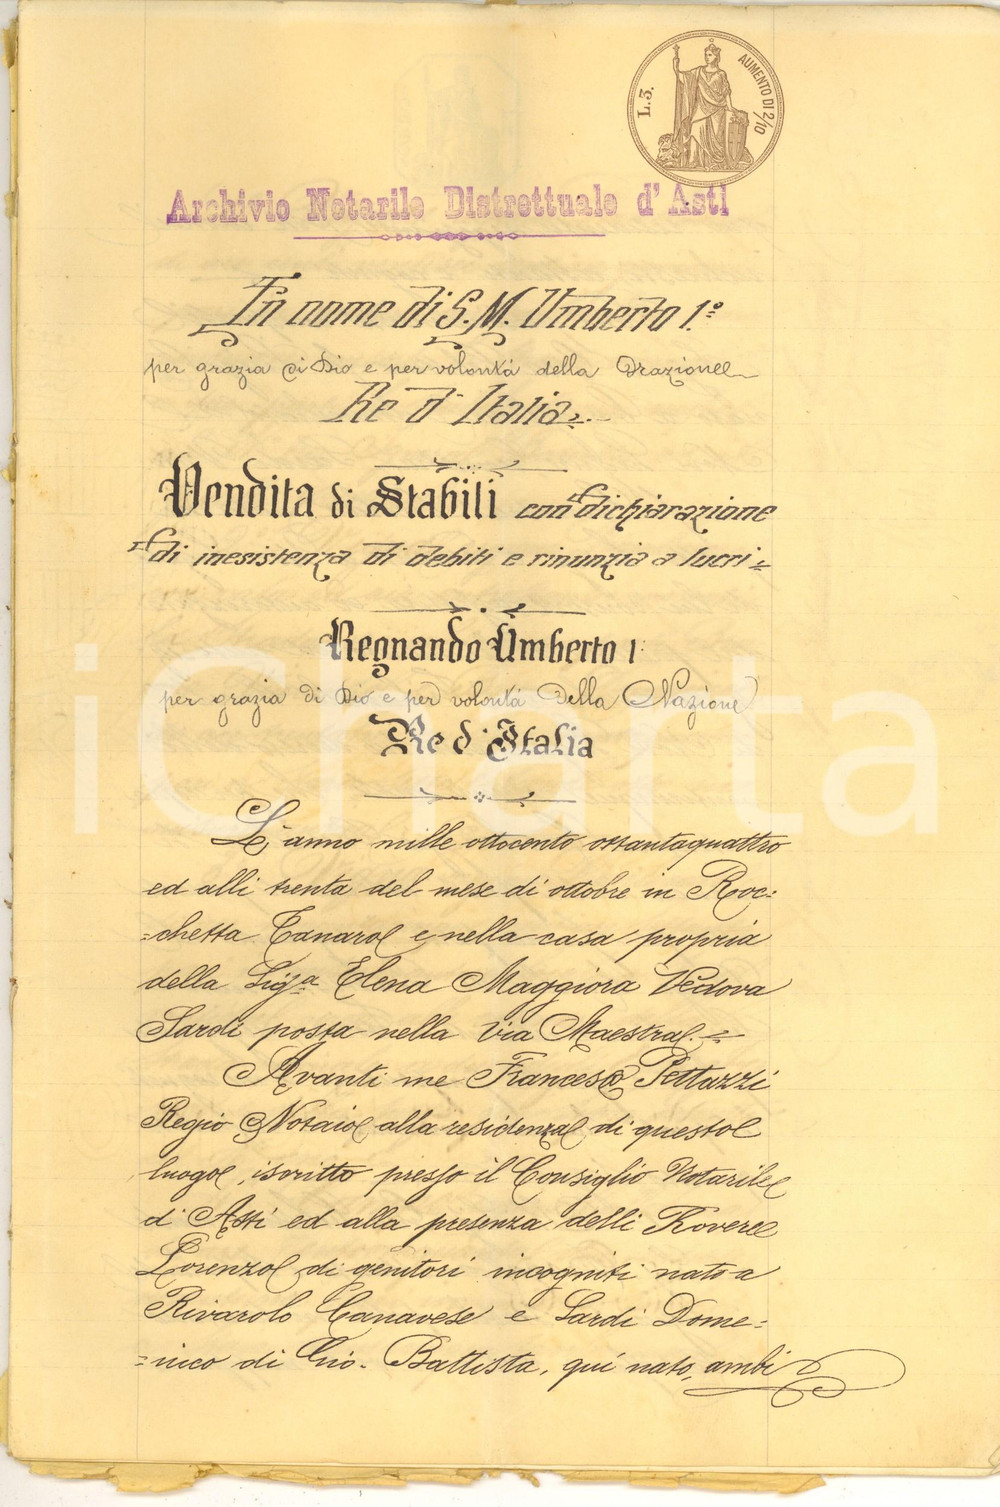 L. 3.
AUMENTO DI 2/10
Archivio Notarile Distrettuale d' Asti
In nome di S. M. Umberto 1.°
per grazia di Dio e per volontà della Nazione
Re d' Italia
Vendita di Stabili con dichiarazione
di inesistenza di debiti e rinunzia a lucri
Regnando Umberto 1
per grazia di Dio e per volontà della Nazione
Re d' Italia
iCharta
L' anno mille ottocento ottantaquattro
ed alli trenta del mese di ottobre in Roc=
=chetta Tanaro e nella casa propria
della Sig.a Elena Maggiora Vedova
Sardi posta nella via Maestra.
Avanti me Francesco Pettazzi
Regio Notaio alla residenza di questo
luogo, iscritto presso il Consiglio Notarile
d' Asti ed alla presenza delli Rovere
Lorenzo di genitori incogniti nato a
Rivarolo Canavese e Sardi Dome=
=nico di Gio. Battista, qui nato, ambi